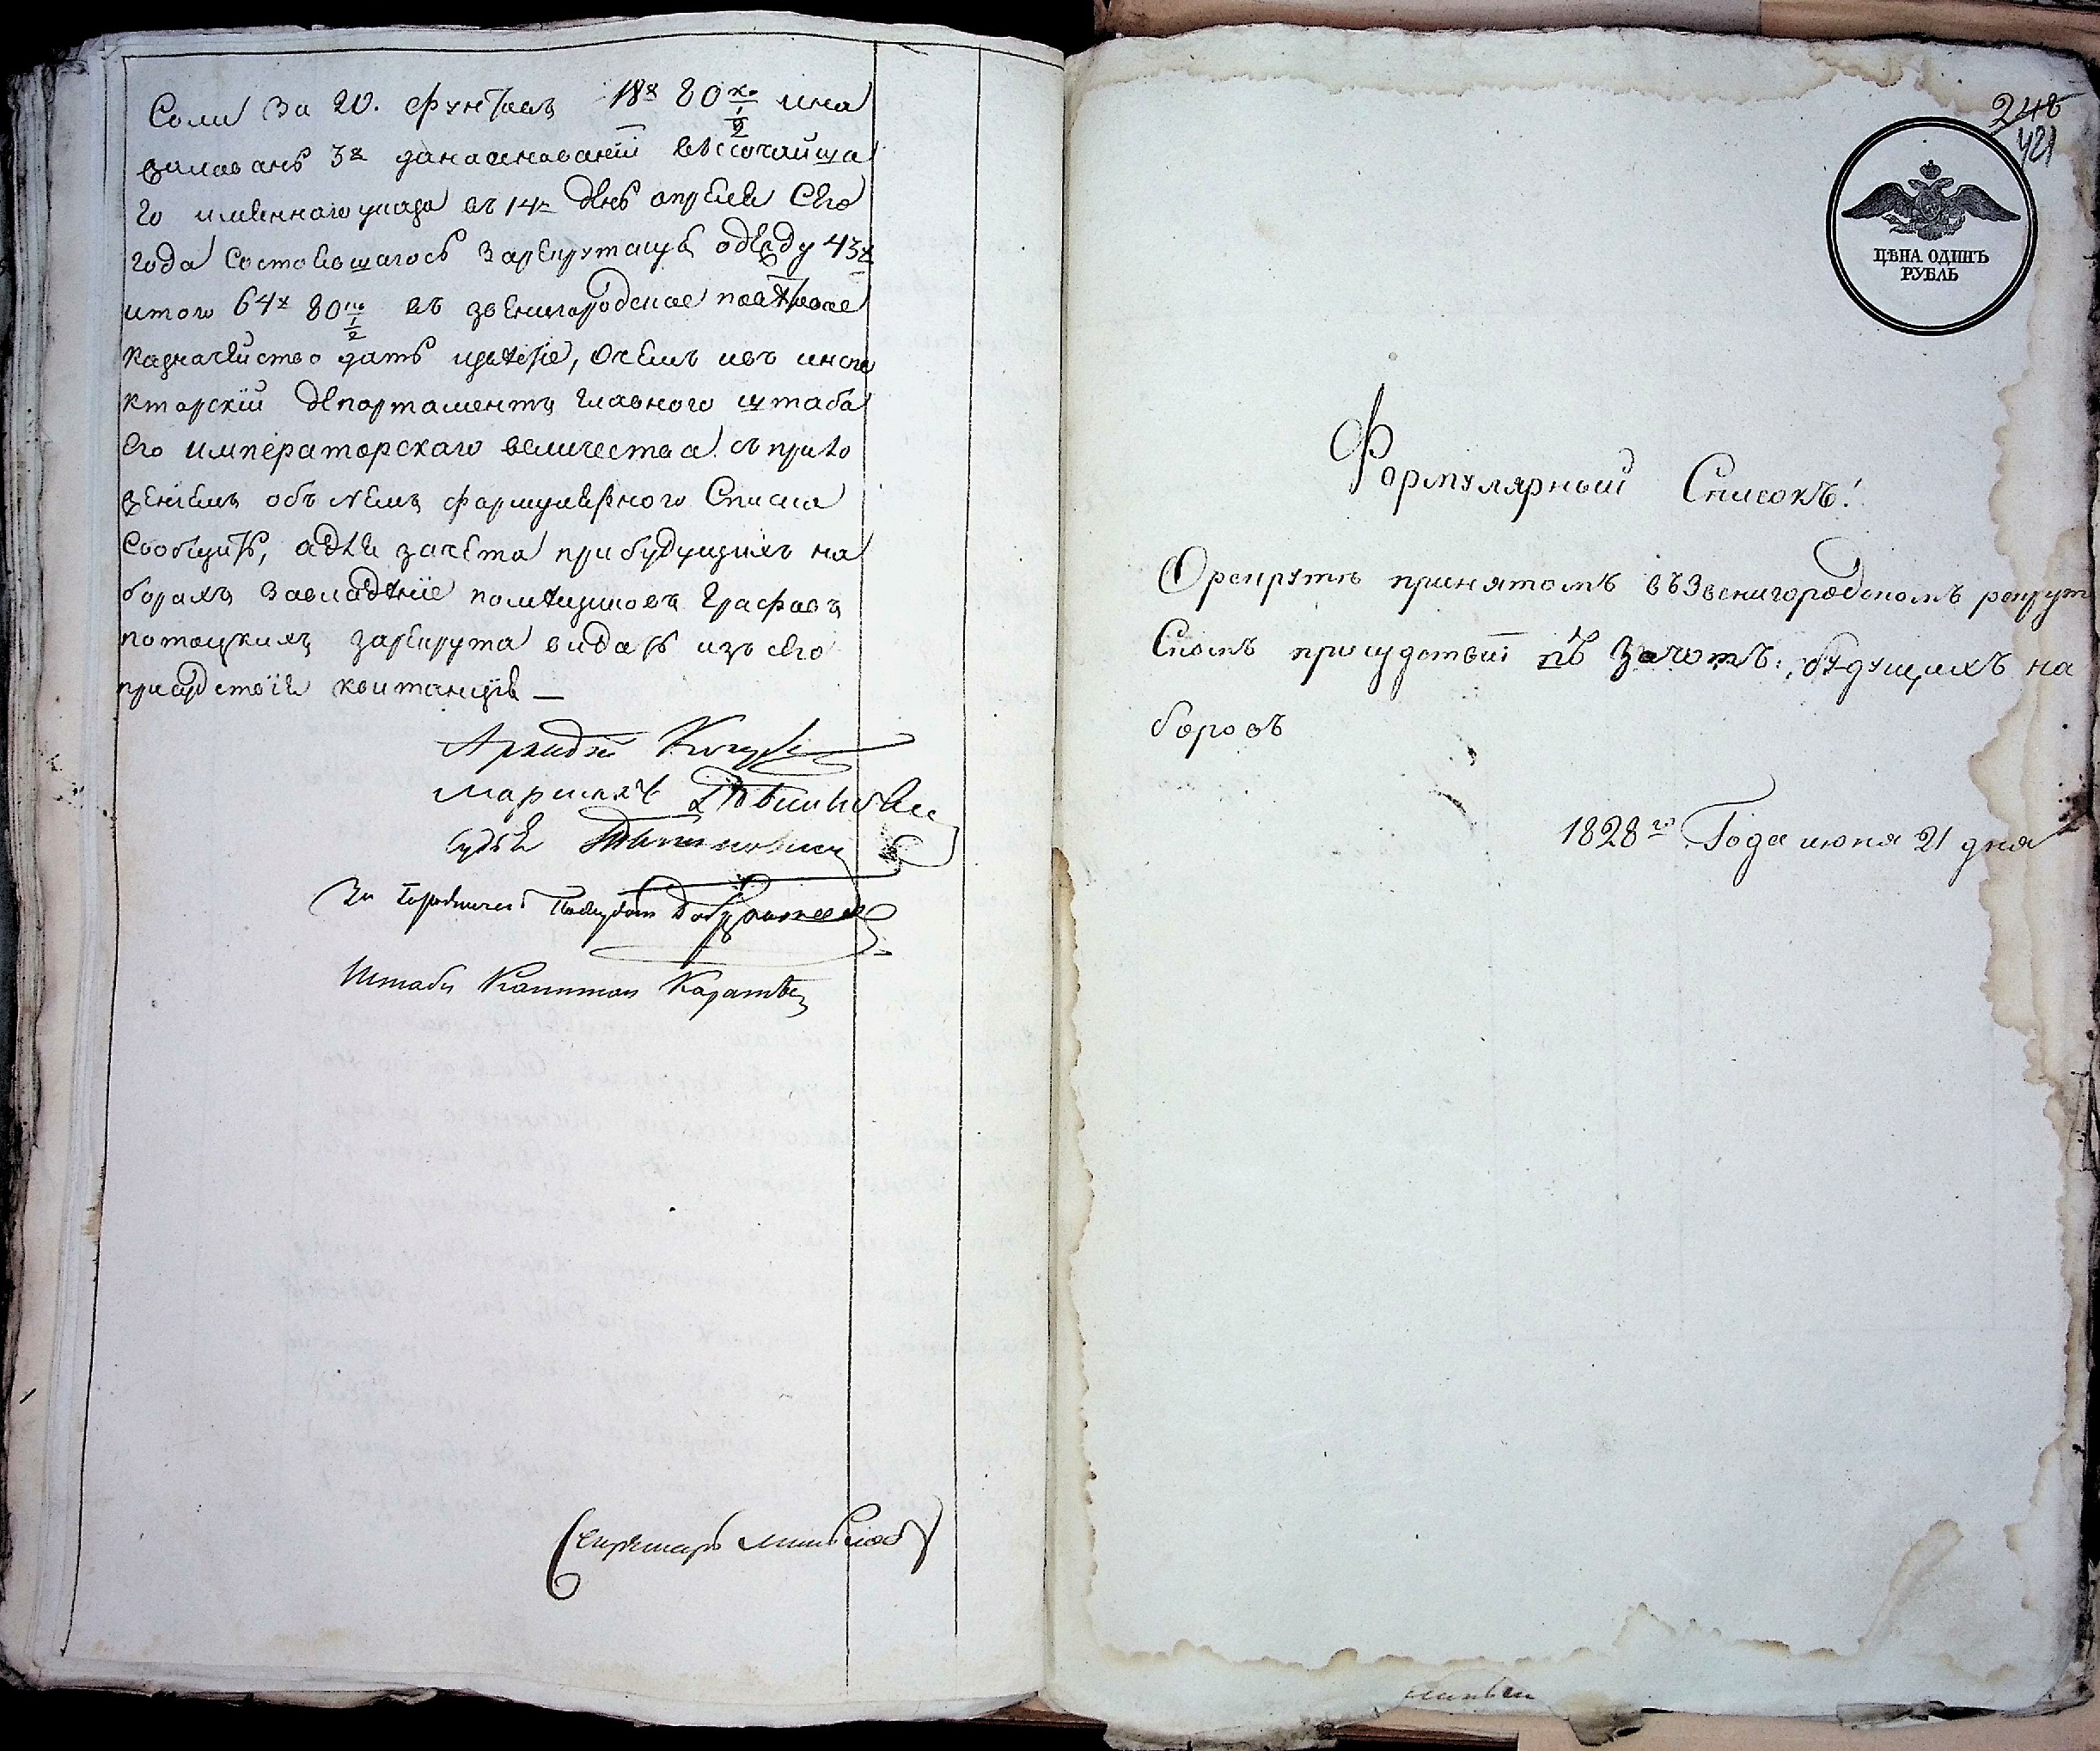 Соли за 20. фунтовъ 18р 80 ко 1/2 ина
жалованъ 3р данаоснованіи высочайша
го имённаго указа въ 14е день апрѣля сего
года состоявшагося зарекрутскую одежду 43р
итого 64р 80 ко 1/2 въ звенигородское повѣтовое
казначейство дать идѣтся, очемъ ивъ инспе
кторскій департаментъ главного штаба
его императорскаго величества съ прило
женіемъ объ немъ формулярного Списка
сообщить, адля зачета прибудущихъ на
борахъ завладѣніе помѣщиковъ Графовъ
потоцкихъ зарекрута видать изъ сего
присудствія квитанцію —
Маршалъ
Судья
За Городничего
Штабъ Капитан
Секретарь
248
421
ЦѢНА ОДИНЪ
РУБЛЬ
Формулярный Списокъ!
Орекрутѣ принятомъ въ Звенигородскомъ рекрут
Скомъ присудствіи въ зачотъ: будущихъ на
боровъ
1828го Года июня 21 дня